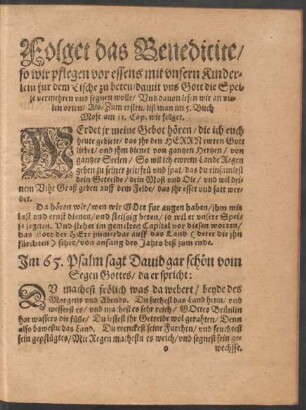 Folget das Benedicite/
so wir pflegen vor essens mit vnsern Kinder-
lein fur dem Tische zu beten/damit vns Gott die Spei-
se vermehren vnd segnen wolle/ Vnd dauon lesen wir an vie-
len orten/ Als/ Zum ersten/ lißt man im 5. Buch
Mose am 11. Cap. wie folget.
WErdet jr meine Gebot hören/ die ich euch
heute gebiete/ das jhr den HERRN ewren Gott
liebet/ vnd jhm dienet von gantzen Hertzen/ von
gantzer Seelen/ So wil ich ewrem Lande Regen
geben zu seiner zeit/ früh vnd spat/ das du einsamlest
dein Getreide/ dein Most vnd Öle/ vnd wil dei-
nem Vihe Graß geben auff dem Felde/ das jhr esset vnd satt wer-
det.
Da hören wir/ wen wir Gott fur augen haben/ jhm mit
lust vnd ernst dienen/ vnd fleissig beten/ so wil er vnsere Spei-
se segnen. Vnd stehet im gemelten Capitel vor diesen worten/
das Gott der HErr jmmerdar auff das Land (derer die jhn
fürchten) sihet/ von anfang des Jahrs biß zum ende.
Im 65. Psalm sagt Dauid gar schön vom
Segen Gottes/ da er spricht:
DV machest frölich was da webert/ beyde des
Morgens vnd Abends. Du suchest das Land heim/ vnd
wesserst es/ vnd machest es sehr reich/ GOttes Brünlin
hat wassers die fülle/ Du lessest jhr Getreide wol gerahten/ Denn
also bawestu das Land. Du trenckest seine Furchen/ vnd feuchtest
sein gepflügtes/ Mit Regen machestu es weich/ vnd segnest sein ge-
wechsse.